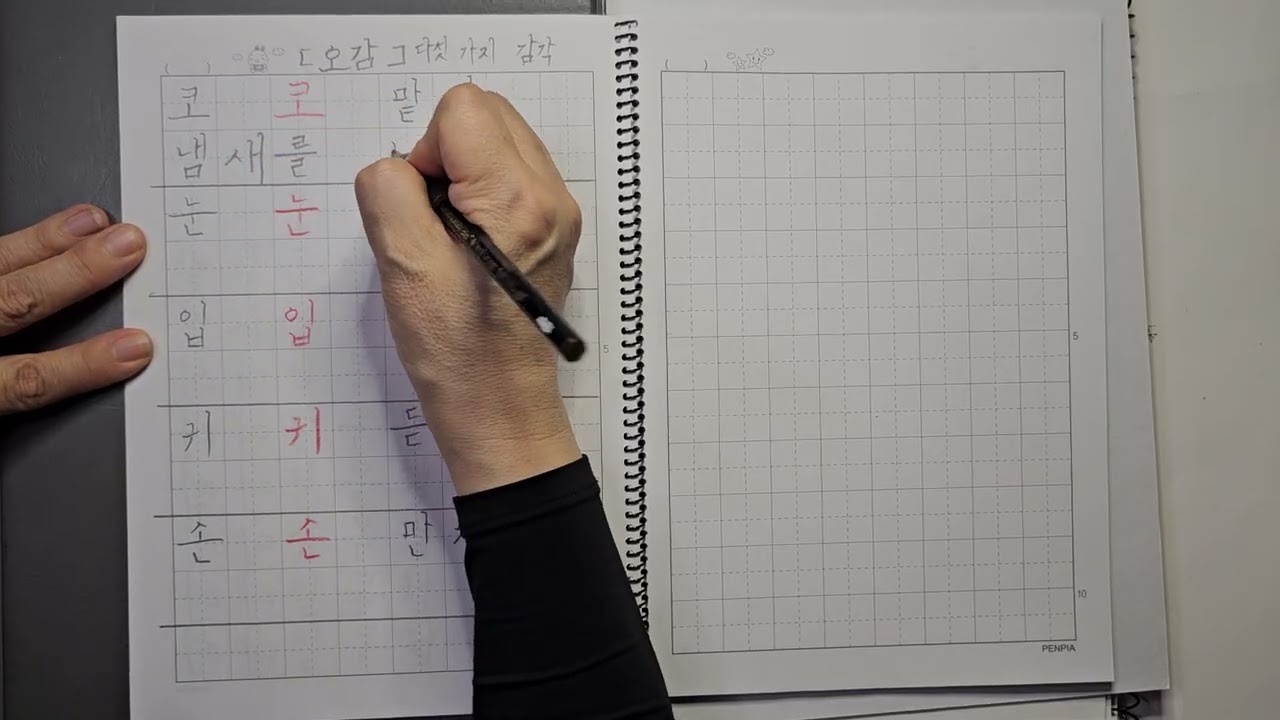 ( ) [ 오감 ] 다섯 가지 감각
코 코 맡
냄새를
눈 눈
입 입
귀 귀 듣
손 손 만
( )
5
5
10
PENPIA